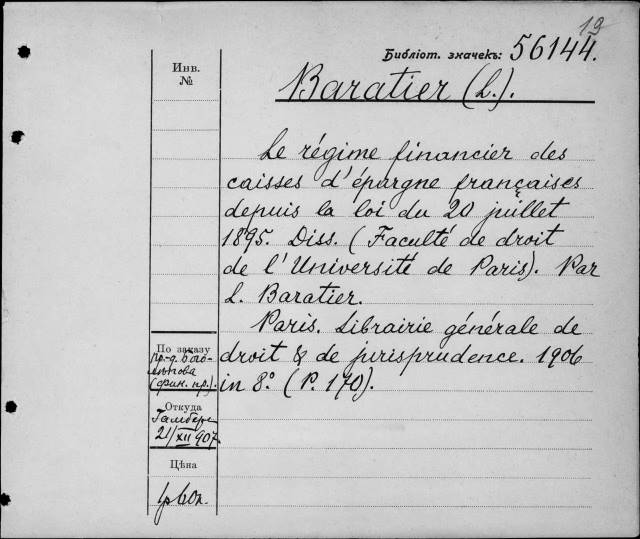 19
Библіот. значекъ: 56144.
Инв.
№
Baratier (L.).
Le régime financier des
caisses d'épargne françaises
depuis la loi du 20 juillet
1895. Diss. (Faculté de droit
de l'Université de Paris). Par
L. Baratier.
Paris. Librairie générale de
droit & de jurisprudence. 1906
in 8.° (P. 170).
По заказу
пр.-д. Бого-
лѣпова
(фин. пр.).
Откуда
21/XII 907
Цѣна